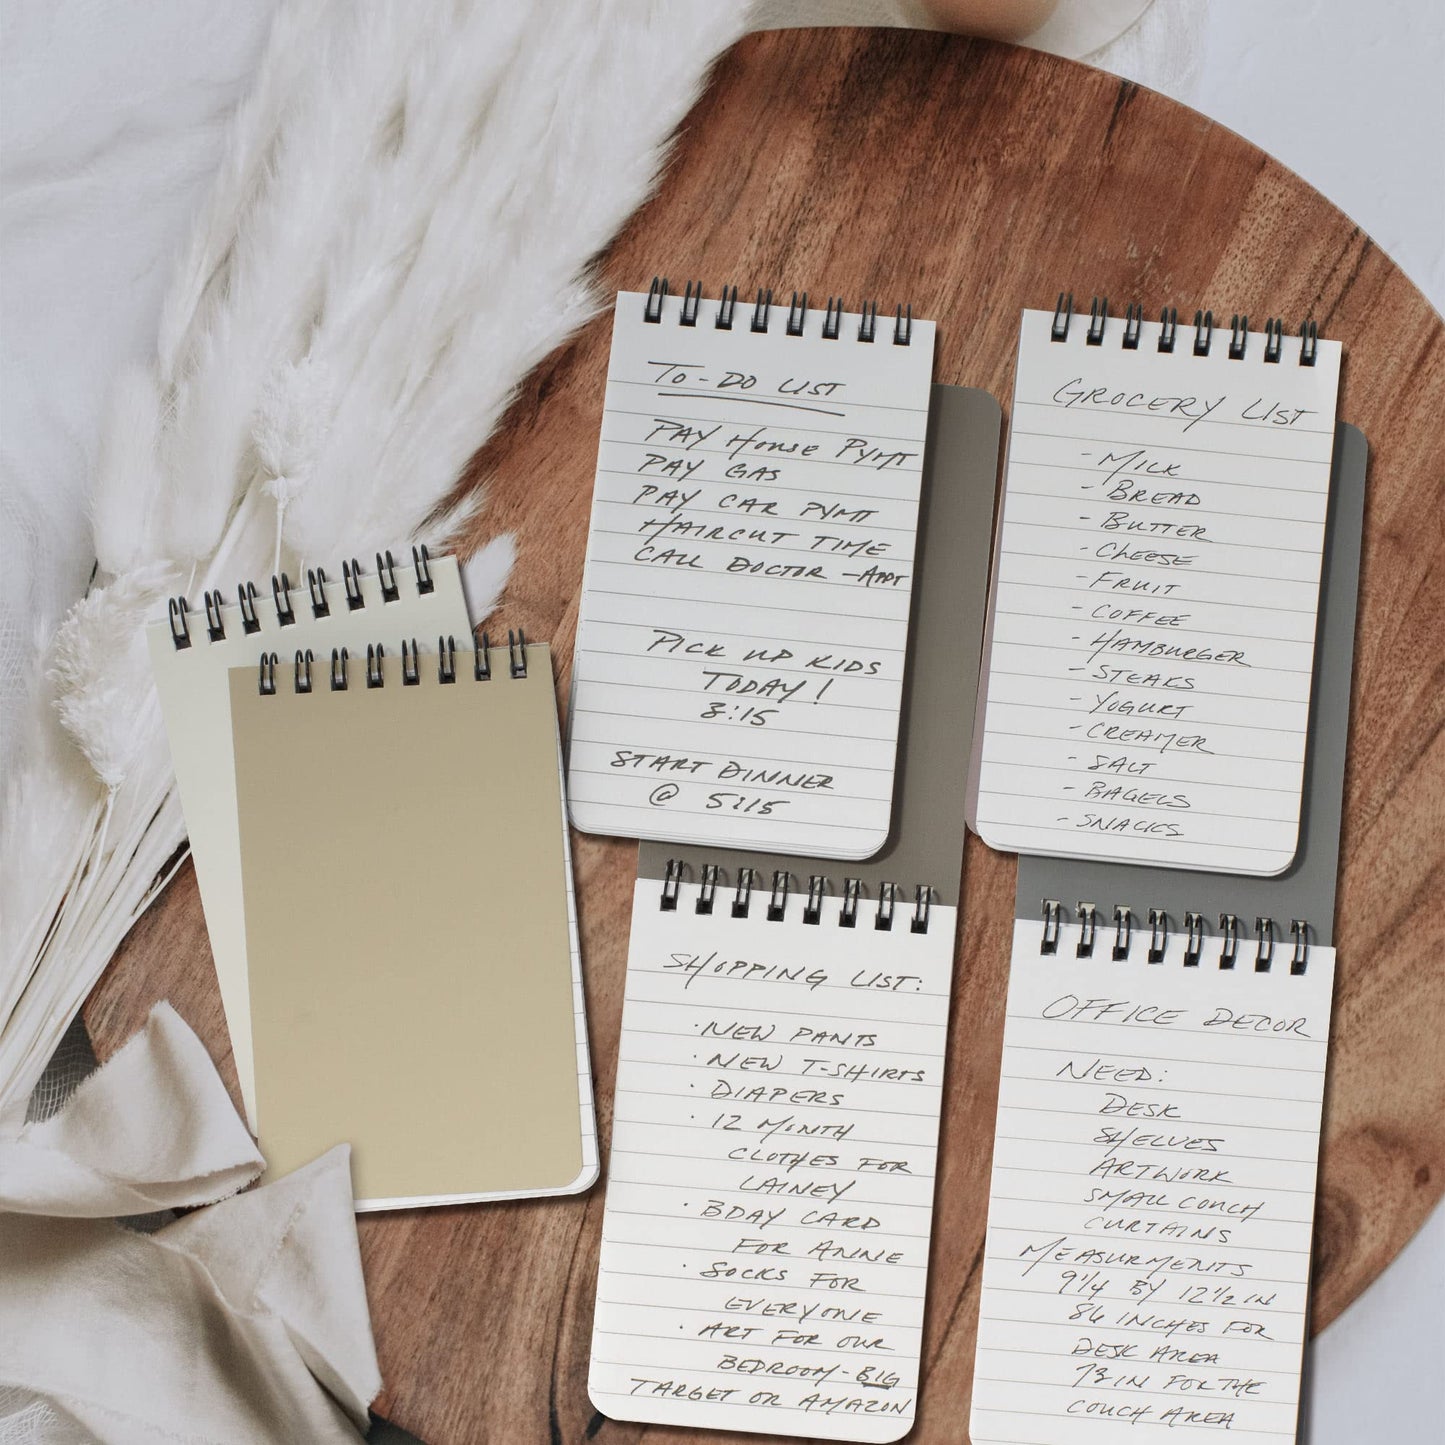 TO-DO LIST
PAY HOUSE PYMT
PAY GAS
PAY CAR PYMT
HAIRCUT TIME
CALL DOCTOR - APPT
PICK UP KIDS
TODAY!
3:15
START DINNER
@ 5:15
GROCERY LIST
- MILK
- BREAD
- BUTTER
- CHEESE
- FRUIT
- COFFEE
- HAMBURGER
- STEAKS
- YOGURT
- CREAMER
- SALT
- BAGELS
- SNACKS
SHOPPING LIST:
· NEW PANTS
· NEW T-SHIRTS
· DIAPERS
· 12 MONTH
CLOTHES FOR
LAINEY
· BDAY CARD
FOR ANNIE
· SOCKS FOR
EVERYONE
· ART FOR OUR
BEDROOM - BIG
TARGET OR AMAZON
OFFICE DECOR
NEED:
DESK
SHELVES
ARTWORK
SMALL COUCH
CURTAINS
MEASURMENTS
9 1/4 BY 12 1/2 IN
86 INCHES FOR
DESK AREA
73 IN FOR THE
COUCH AREA